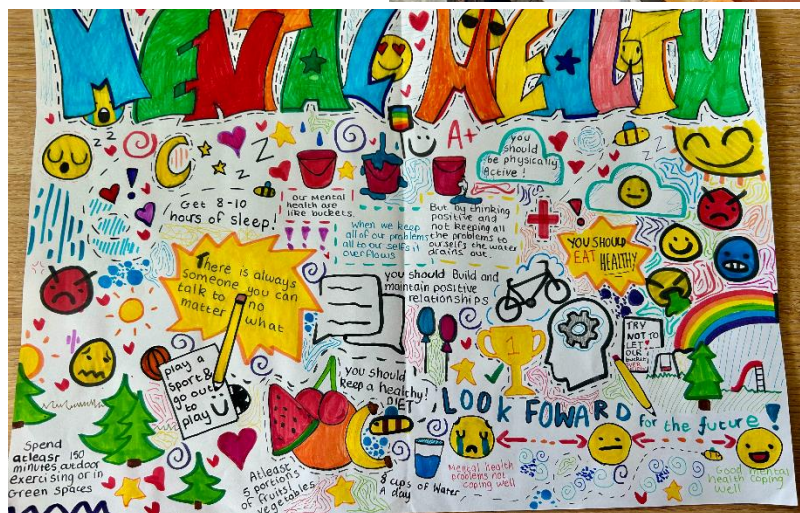 MENTAL HEALTH
z z
z z z
A+
you
should
be physically
Active!
Get 8-10
hours of sleep!
Our Mental
health are
like buckets.
When we keep
all of our problems
all to our selfs it
overflows
But by thinking
positive and
not keeping all
the problems to
ourselfs the water
drains out.
YOU SHOULD
EAT HEALTHY!
There is always
someone you can
talk to no
matter what
you should Build and
maintain positive
relationships
1
TRY
NOT TO
LET
OUR
play a
sport &
go out
to
play
you should
keep a healthy!
DIET
LOOK FOWARD for the future!
Spend
atleast 150
minutes outdoor
exercising or in
Green spaces
Atleast
5 portions
of fruits/
vegetables
8 cups of Water
A day
Mental health
problems not
coping well
Good mental
health coping
well